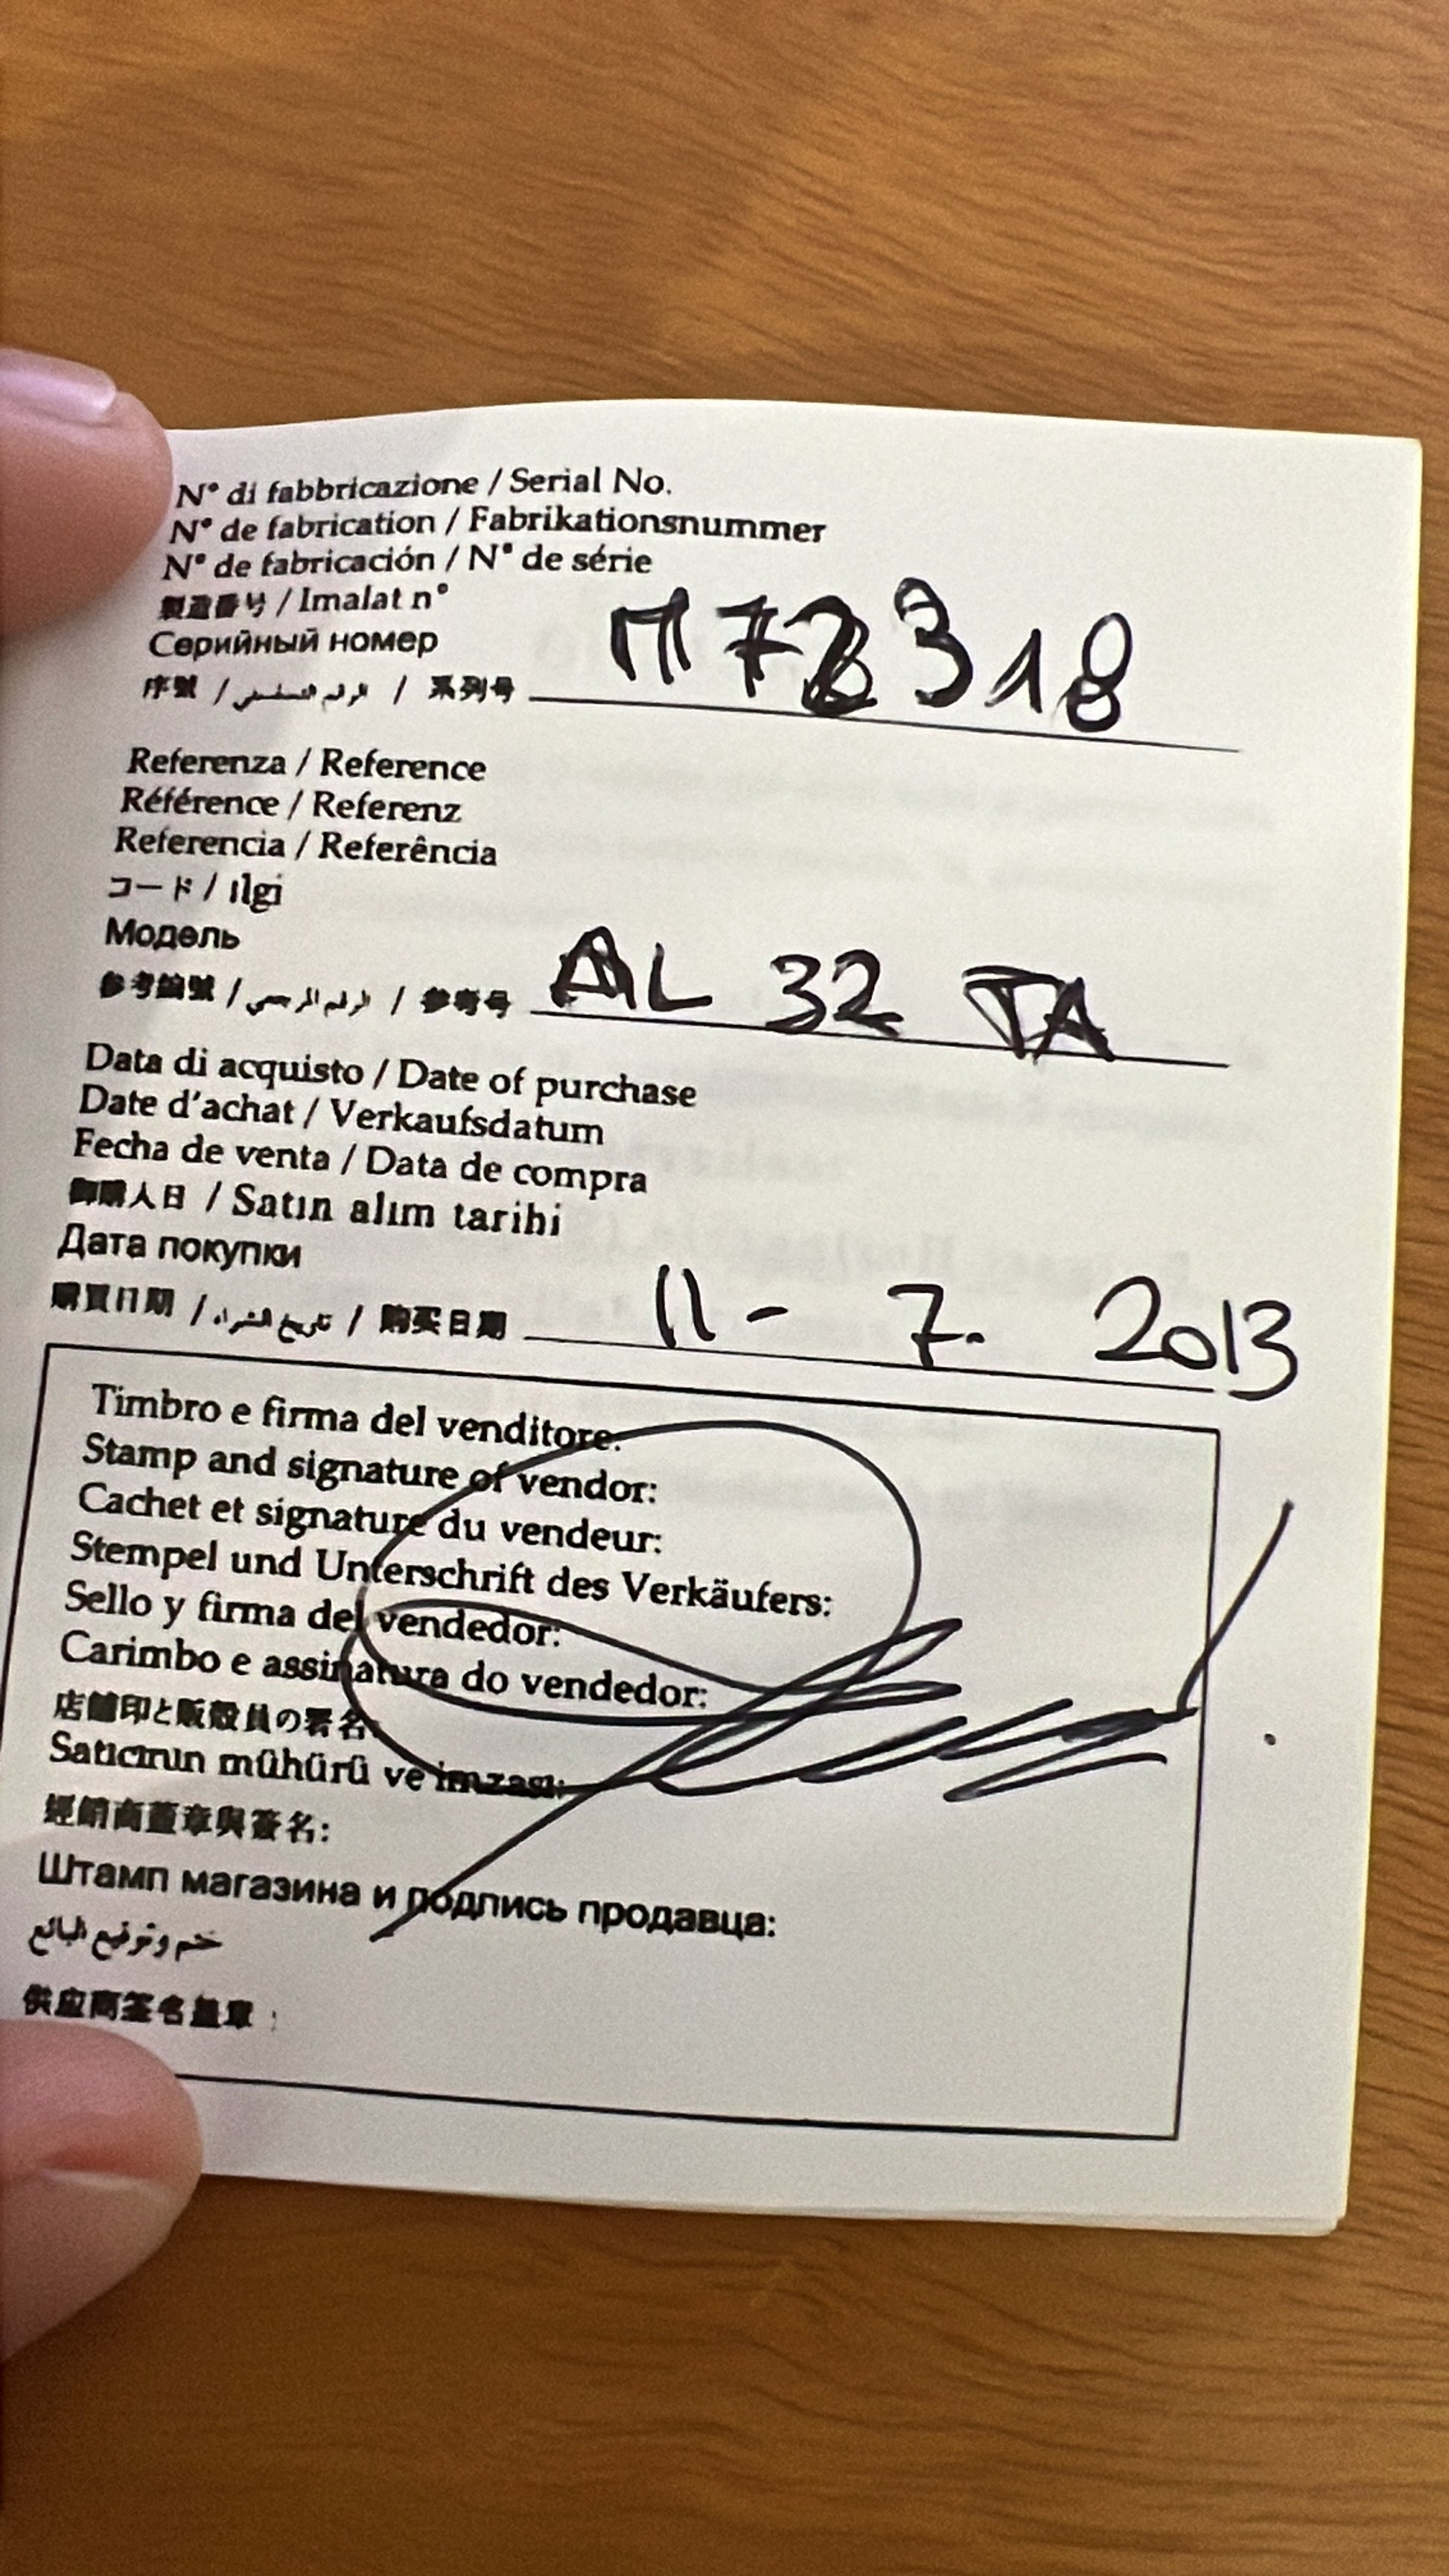 N° di fabbricazione / Serial No.
N° de fabrication / Fabrikationsnummer
N° de fabricación / N° de série
製造番号 / Imalat n°
Серийный номер
序號 / الرقم التسلسلي / 系列号
Referenza / Reference
Référence / Referenz
Referencia / Referência
コード / Ilgi
Модель
參考編號 / الرقم المرجعي / 参考号 AL 32 TA
Data di acquisto / Date of purchase
Date d'achat / Verkaufsdatum
Fecha de venta / Data de compra
御購入日 / Satın alım tarihi
Дата покупки
購買日期 / تاريخ الشراء / 购买日期 11 - 7. 2013
Timbro e firma del venditore:
Stamp and signature of vendor:
Cachet et signature du vendeur:
Stempel und Unterschrift des Verkäufers:
Sello y firma del vendedor:
Carimbo e assinatura do vendedor:
店舗印と販売員の署名:
Satıcının mühürü ve imzası:
經銷商蓋章與簽名:
Штамп магазина и подпись продавца:
ختم وتوقيع البائع
供应商签名盖章 :